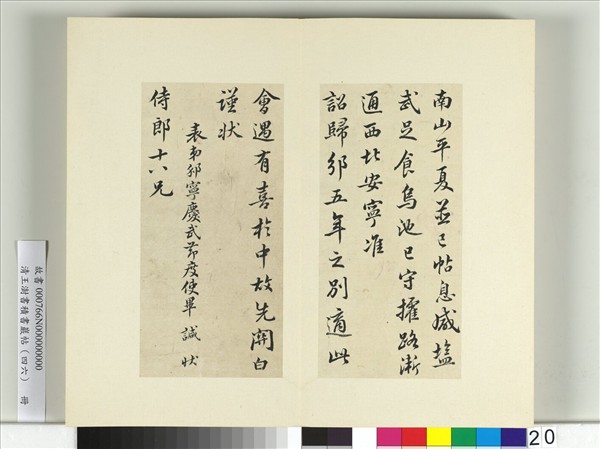 南山平夏並已帖息咸鹽
武足食烏池已守權路漸
通西北安寧准
詔歸邠五年之別適此
會遇有喜於中故先開白
謹狀
表弟邠寧慶武節度使畢諴狀
侍郎十八兄
故書000766N000000000
清王澍書積書巖帖(四六) 冊
20